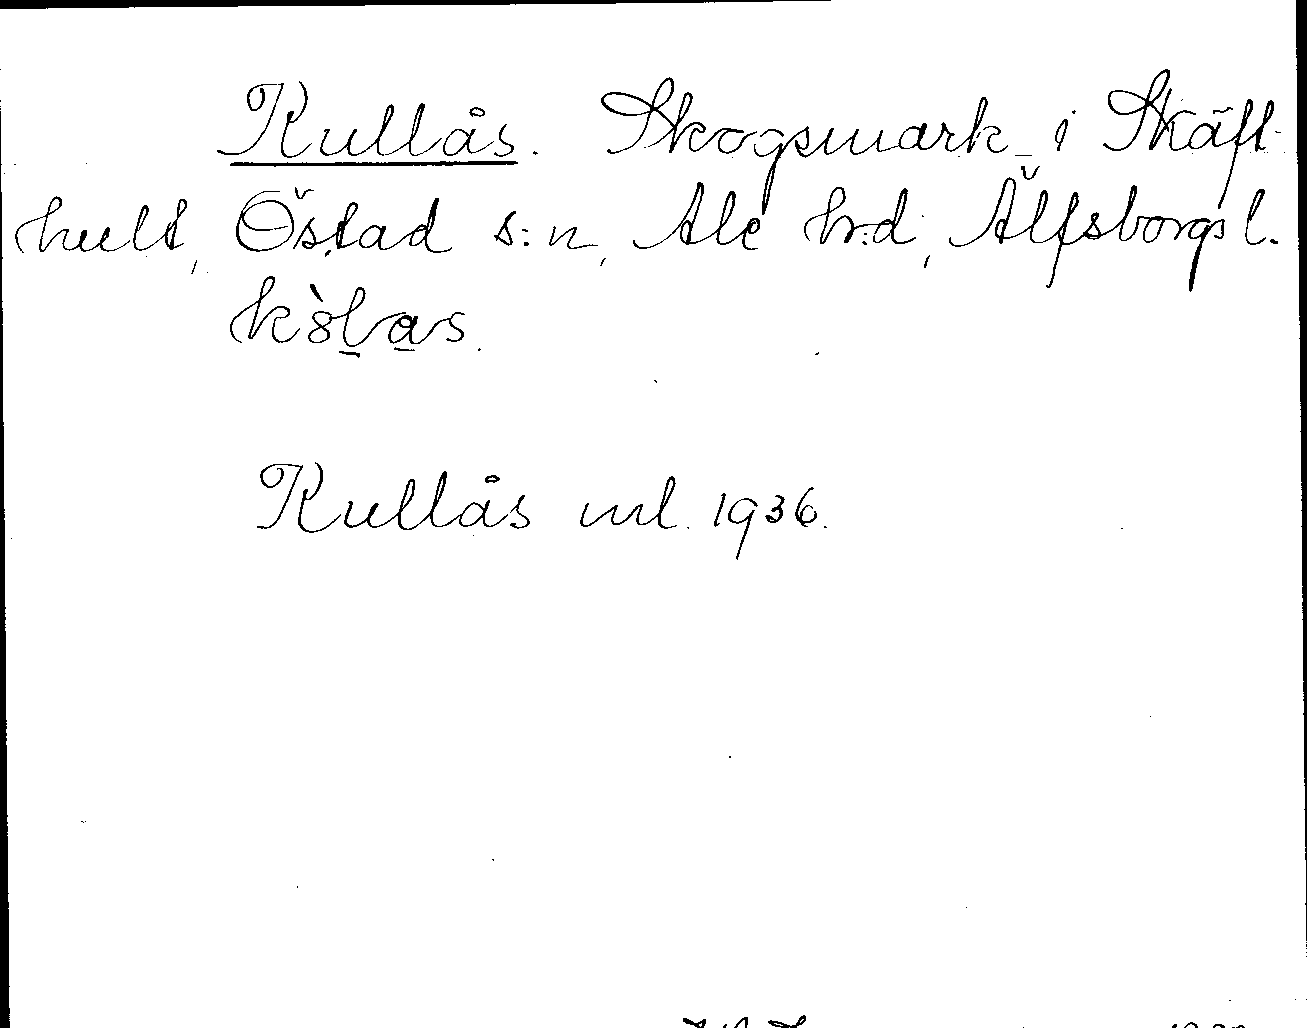 Kullås. Skogsmark i Skäft-
hult, Östad s:n, Ale h:d, Älfsborgs l.
Kullås ml. 1936.